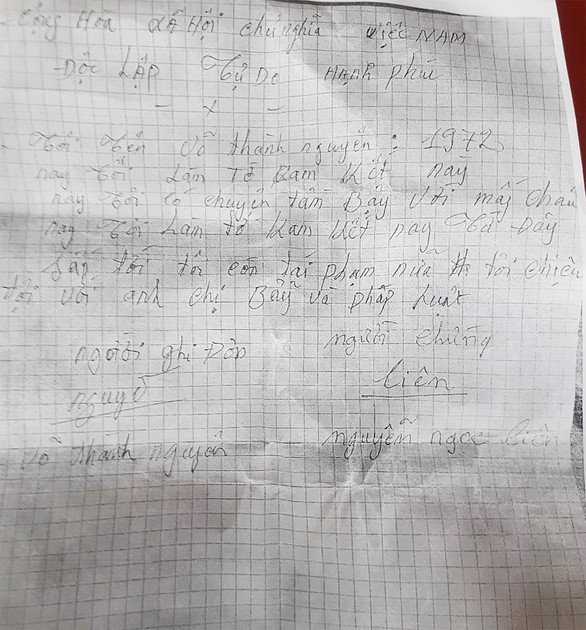 Cộng Hòa Xã Hội chủ nghĩa Việt NAM
Độc LẬP Tự Do HẠNH phúc
- x -
Tôi Tên Võ thành nguyên : 1972
nay Tôi Làm Tờ Kam Kết này
nay Tôi có chuyện tầm Bậy với mấy cháu
nay Tôi Làm tờ Kam Kết này Từ Đây
sắp tới tôi còn tái phạm nữa thì tôi chiệu
tội với anh chị Bẫy và pháp luật
người ghi Đơn người chứng
nguyê liên
Võ thanh nguyên nguyễn ngọc liên